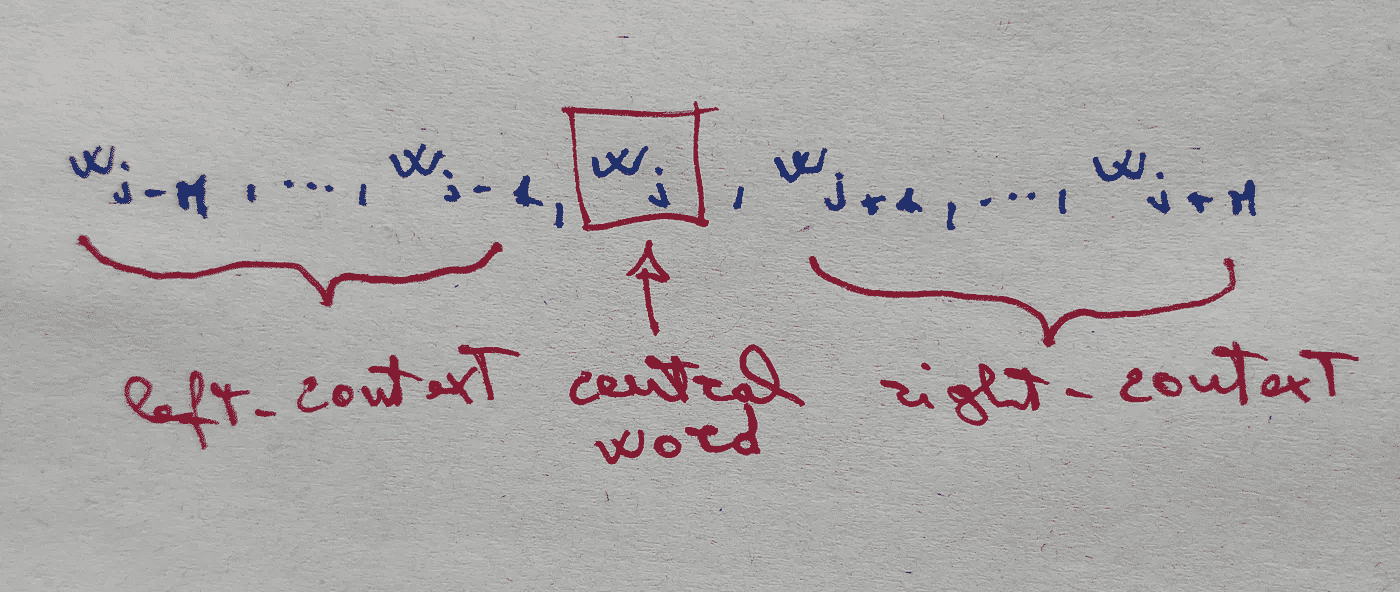 w_{j-M}, ..., w_{j-1}, w_j, w_{j+1}, ..., w_{j+M}
left-context central right-context
word